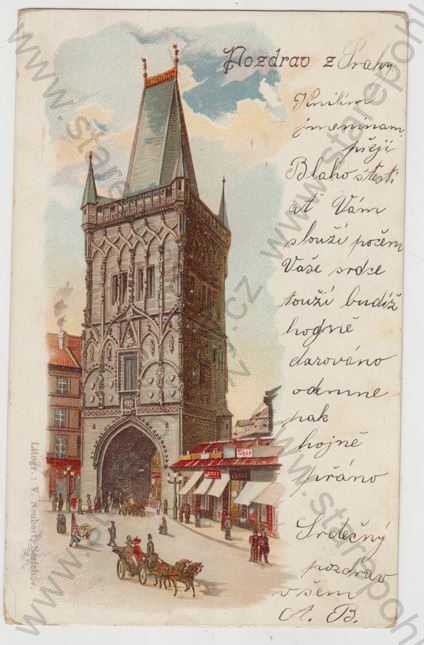 Pozdrav z Prahy
Vším
jmeninám
přeji
Blaho štěstí
ať Vám
slouží počem
Vaše srdce
touží budiž
hojně
darováno
odemne
pak
hojně
přáno
Srdečný
pozdrav
všem
A. B.
Litogr. V. Neubert, Smíchov.
www.starepohledy.cz